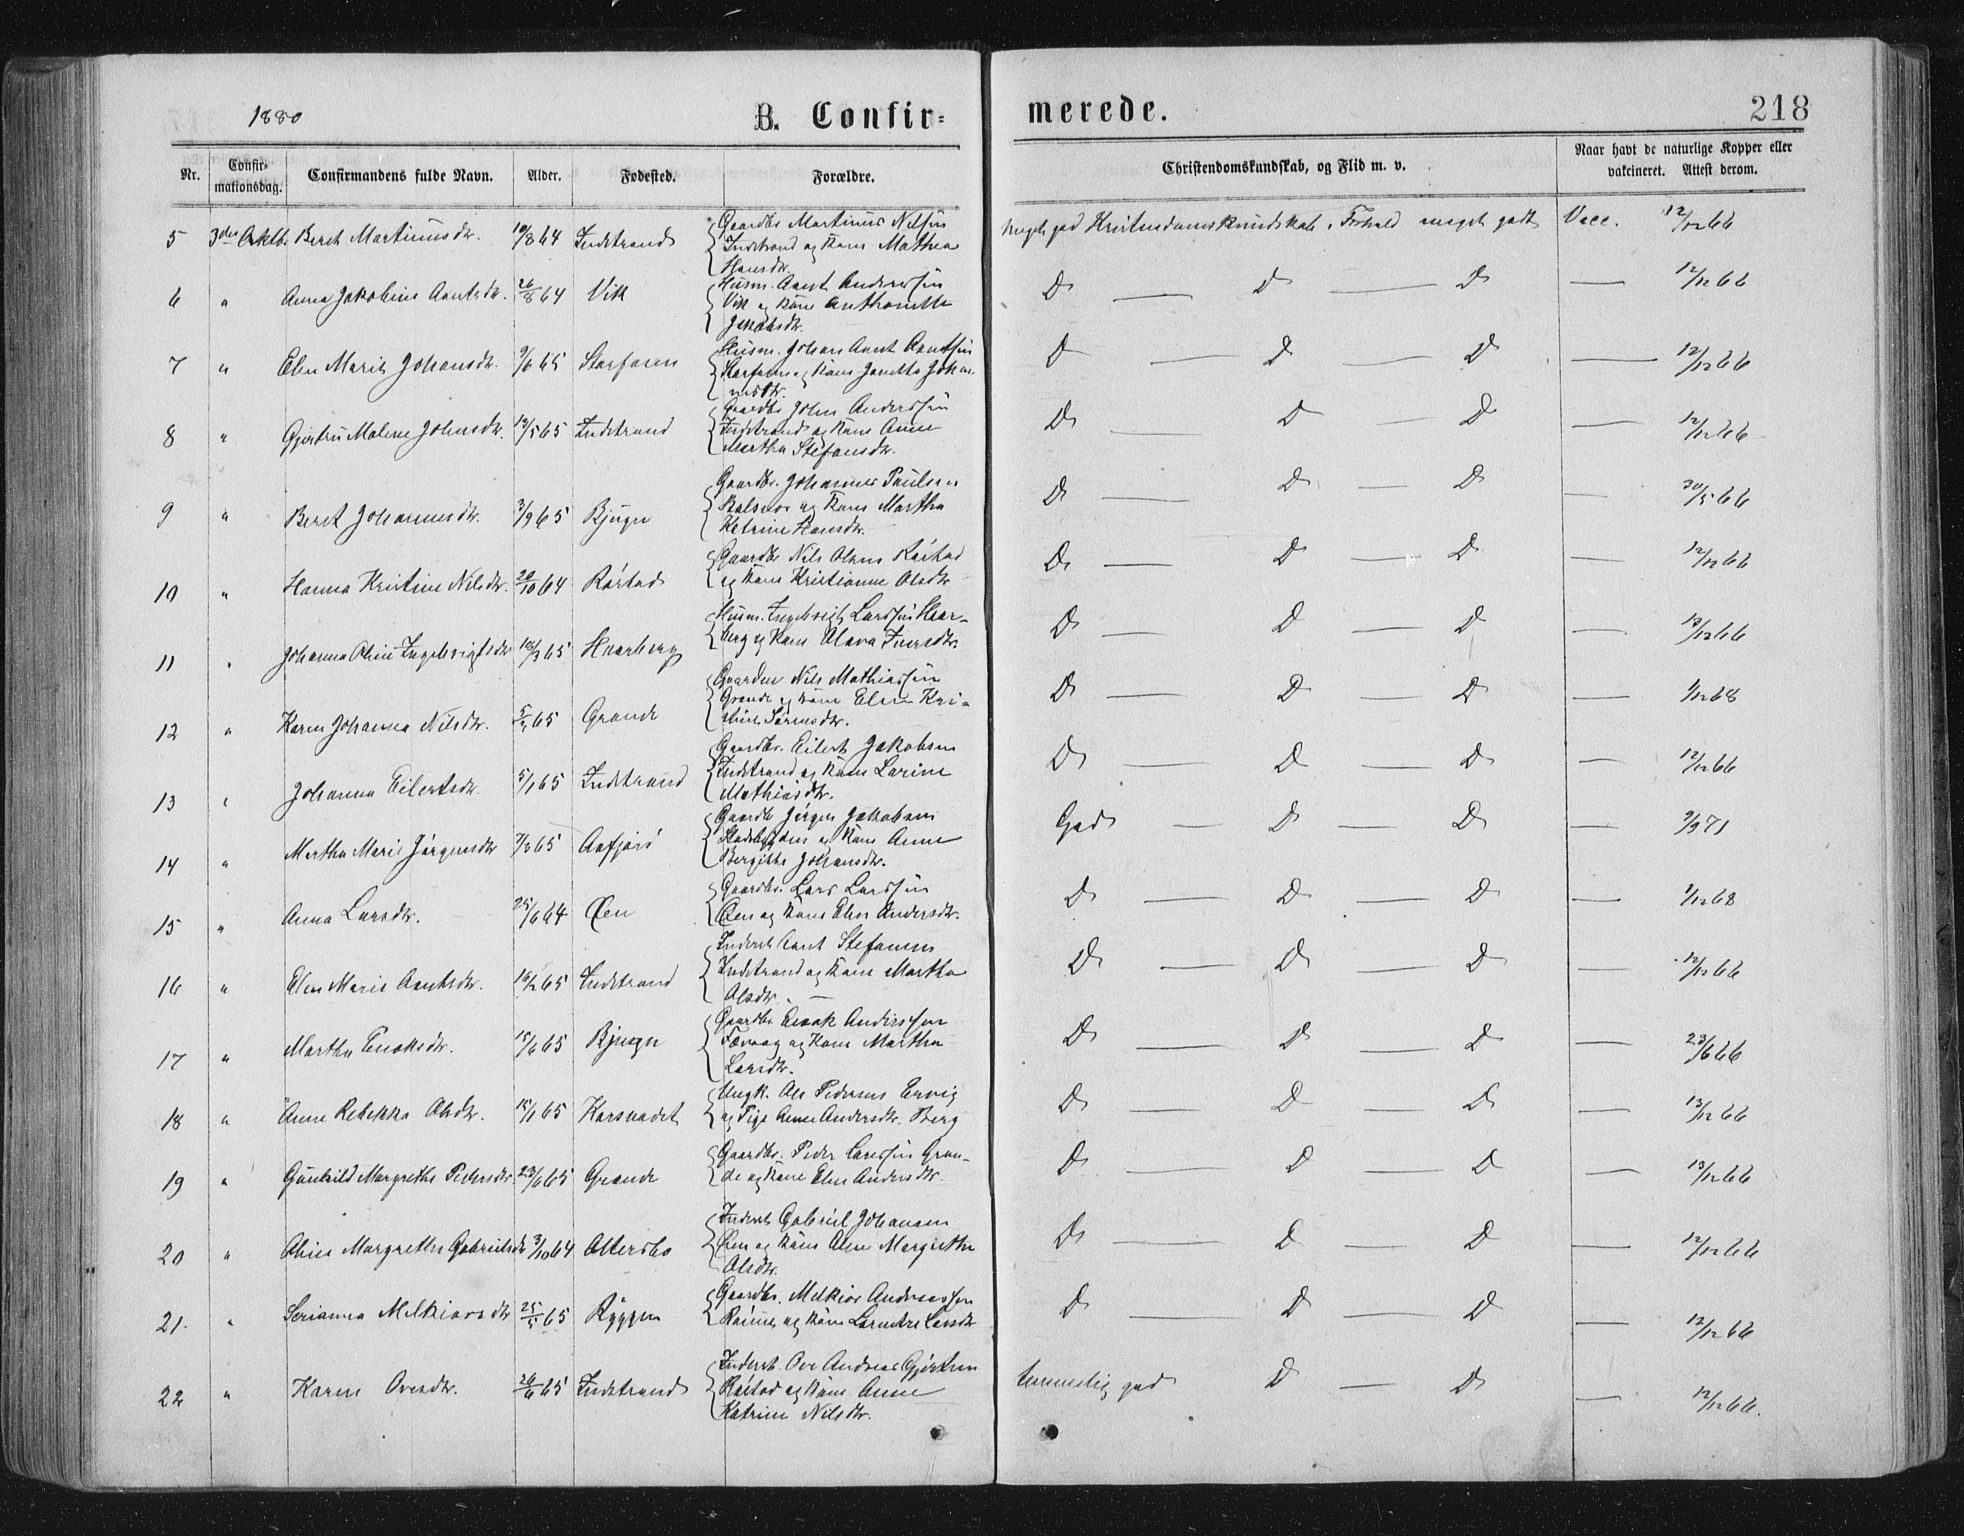 1880
B. Confirmerede.
218
Nr.
Confirmationsdag.
Confirmandens fulde Navn.
Alder.
Fødested.
Forældre.
Christendomskundskab, og Flid m. v.
Naar havt de naturlige Kopper eller vakcineret. Attest derom.
5 3die Oktbr. Beret Martinusdr. 10/8 64 Indstrand Gaardbr. Martinus Nilsen
Indstrand og Kone Mathea
Hansdr.
meget god Kristendomskundskab. Forhold meget godt Vacc. 12/12 66
6 " Anna Jakobine Aantsdr. 26/8 64 Vik Husm. Aant Anderssen
Vik og Kone Anthonette
Jakobsdr.
D — D — D — 12/12 66
7 " Elen Marie Johansdr. 9/6 65 Storfosen Husm. Johan Aant Aantsen
Storfosen og Kone Johan
nesdtr.
D — D — D — 12/12 66
8 " Gjertru Malene Johnsdr. 12/5 65 Indstrand Gaardbr. John Anderssen
Indstrand og Kone Anne
Martha Stefansdr.
D — D — D — 12/12 66
9 " Beret Johannesdr. 3/9 65 Bjugn Gaardbr. Johannes Paulsen
og Kone Martha
Katrine Hansdr.
D — D — D — 30/5 66
10 " Hanna Kristine Nilsdr. 20/10 64 Røstad Gaardbr. Nils Olsen Røstad
og Kone Kristianne Olsdr.
D — D — D — 12/12 66
11 " Johanna Oline Ingebrigtsdr. 18/3 65 Hoarberg Husm. Ingebrigt Larssen Hoar-
berg og Kone Olava Iversdr.
D — D — D — 13/12 66
12 " Karen Johanna Nilsdr. 65 Grande Nils Mathiassen
Grande og Kone Elen Kri-
stine Sørensdr.
D — D — D — 1/12 68
13 " Johanna Eilertsdr. 5/1 65 Indstrand Gaardbr. Eilert Jakobsen
Indstrand og Kone Larine
Mathiasdr.
D — D — D — 12/12 66
14 " Martha Marie Jørgensdr. 7/3 65 Aafjord Gaardbr. Jørgen Jakobsen
og Kone Anne
Bergitte Johansdr.
God — D — D — 9/9 71
15 " Anna Larsdr. 25/6 64 Øen Gaardbr. Lars Larssen
Øen og Kone Elen Andersdr.
D — D — D — 1/12 68
16 " Elen Marie Aantsdr. 16/2 65 Indstrand Inderst Aant Stefansen
Indstrand og Kone Martha
Olsdr.
D — D — D — 12/12 66
17 " Martha Enoksdr. 15/6 65 Bjugn Gaardbr. Enok Anderssen
og Kone Martha
Larsdr.
D — D — D — 23/6 66
18 " Anne Rebekka Olsdr. 15/1 65 Ungk. Ole Pedersen Ervig
og Pige Anne Andersdr. Berg
D — D — D — 13/12 66
19 " Gunhild Margrethe Pedersdr. 23/6 65 Grande Gaardbr. Peder Larssen Gran-
de og Kone Elen Andersdr.
D — D — D — 13/12 66
20 " Oline Margrethe Gabrielsdr. 3/10 64 Ottersbo Inderst Gabriel Johansen
Øen og Kone Margrethe
Olsdr.
D — D — D — 12/12 66
21. " Serianna Melkiorsdr. 25/5 65 Ryggen Gaardbr. Melkior Andreassen
og Kone Larsdr.
D — D — D — 12/12 66
22 " Karen Ovesdr. 26/6 65 Indstrand Inderst Ove Andreas Gjertsen
Røstad og Kone Anne
Katrine Nilsdr.
temmelig god D — D — 12/12 66.